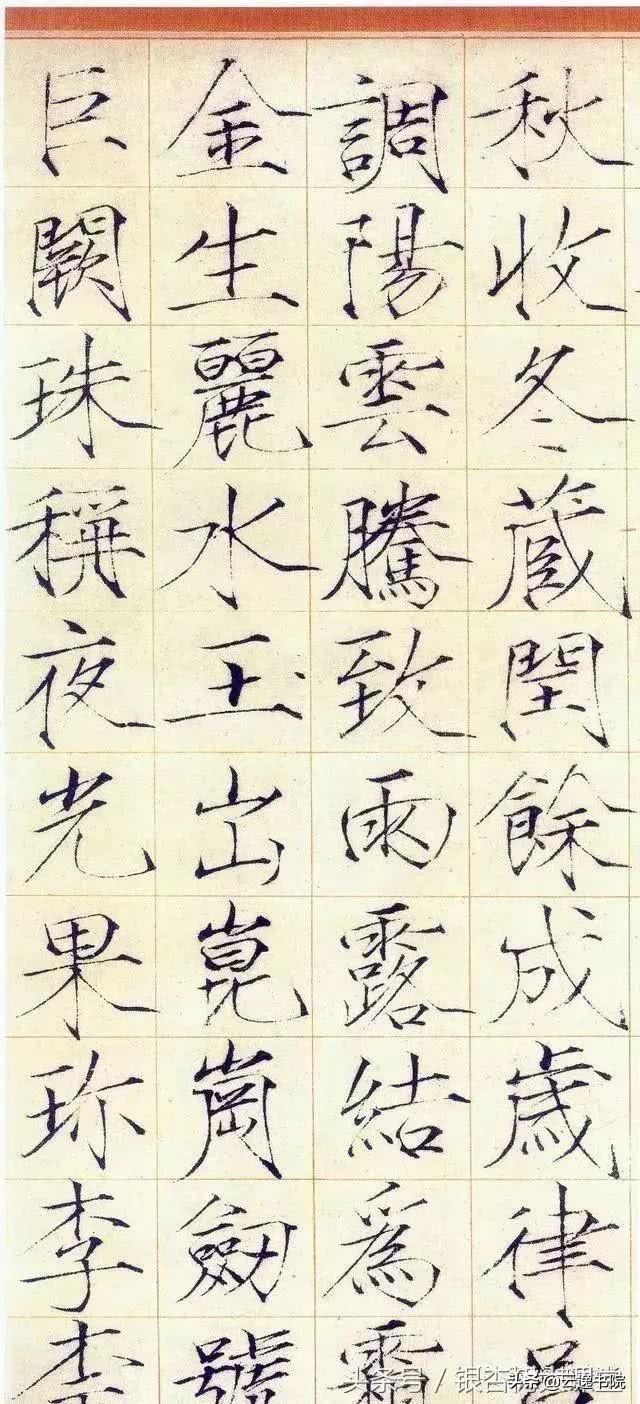 秋收冬藏閏餘成歲律吕
調陽雲騰致雨露結爲霜
金生麗水玉出崑崗劔號
巨闕珠稱夜光果珎李
头条号/银杏
头条@云逸书院